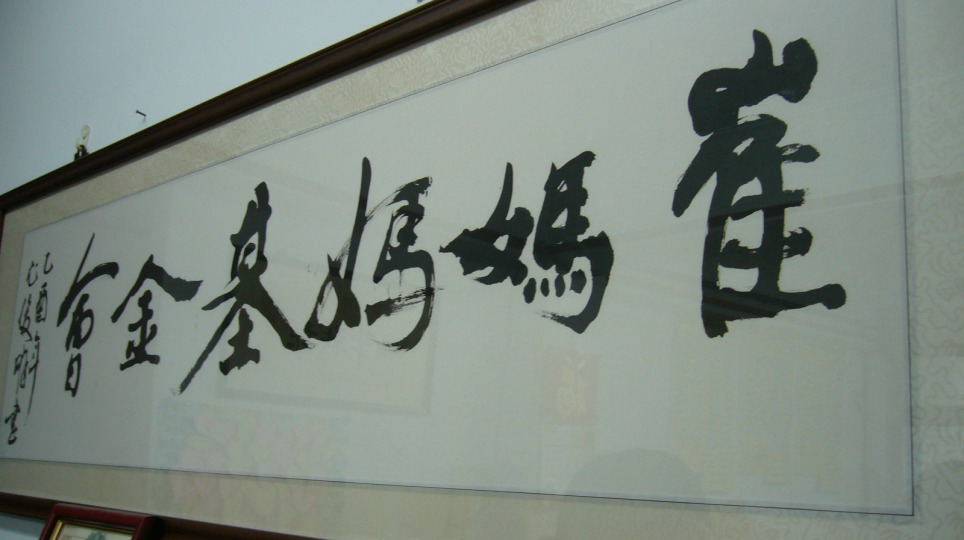 崔媽媽基金會
乙酉年